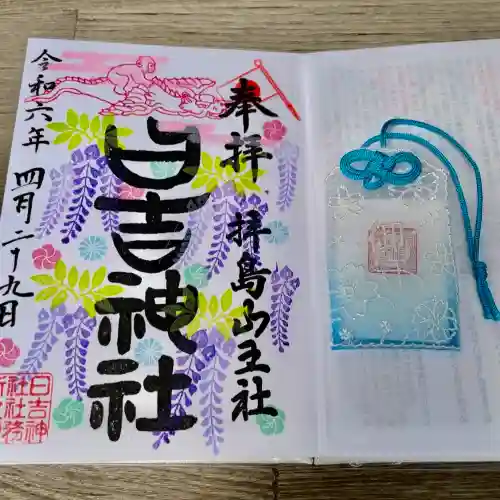 奉拝
拝島山王社
日吉神社
令和六年
四月二十九日
日吉神
社社務